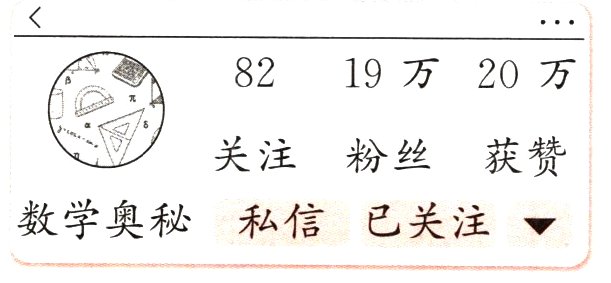 82 19 万 20 万
关注 粉丝 获赞
数学奥秘 私信 已关注